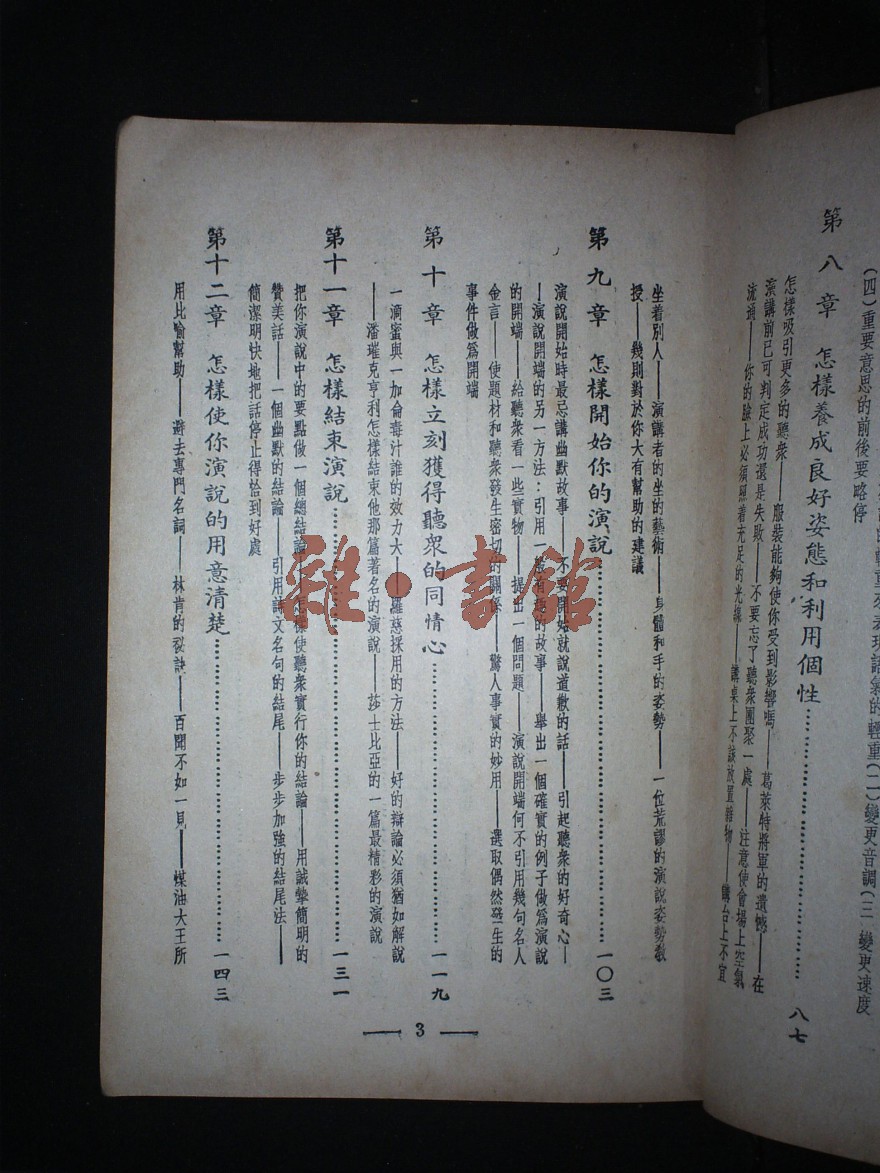 (四)重要意思的前後要略停
第八章 怎樣養成良好姿態和利用個性……八七
怎樣吸引更多的聽衆——服裝能夠使你受到影響嗎——葛萊特將軍的遺憾——在
演講前已可判定成功還是失敗——不要忘了聽衆團聚一處——注意使會場上空氣
流通——你的臉上必須照着充足的光線——講桌上不該放置雜物——講台上不宜
坐着別人——演講者的坐的藝術——身體和手的姿勢——一位荒謬的演說姿勢教
授——幾則對於你大有幫助的建議
第九章 怎樣開始你的演說……一〇三
演說開始時最忌講幽默故事——不要開始就說道歉的話——引起聽衆的好奇心—
—演說開端的另一方法:引用一般有趣的故事——舉出一個確實的例子做爲演說
的開端——給聽衆看一些實物——提出一個問題——演說開端何不引用幾句名人
金言——使題材和聽衆發生密切的關係——驚人事實的妙用——選取偶然發生的
事件做爲開端
第十章 怎樣立刻獲得聽衆的同情心……一一九
一滴蜜與一加侖毒汁誰的效力大——羅慈採用的方法——好的辯論必須猶如解說
——潘璀克亨利怎樣結束他那篇著名的演說——莎士比亞的一篇最精彩的演說
第十一章 怎樣結束演說……一三一
把你演說中的要點做一個總結論——怎樣使聽衆實行你的結論——用誠摯簡明的
贊美話——一個幽默的結論——引用詩文名句的結尾——步步加強的結尾法——
簡潔明快地把話停止得恰到好處
第十二章 怎樣使你演說的用意清楚……一四三
用比喻幫助——避去專門名詞——林肯的秘訣——百聞不如一見——煤油大王所
3
雜·書館